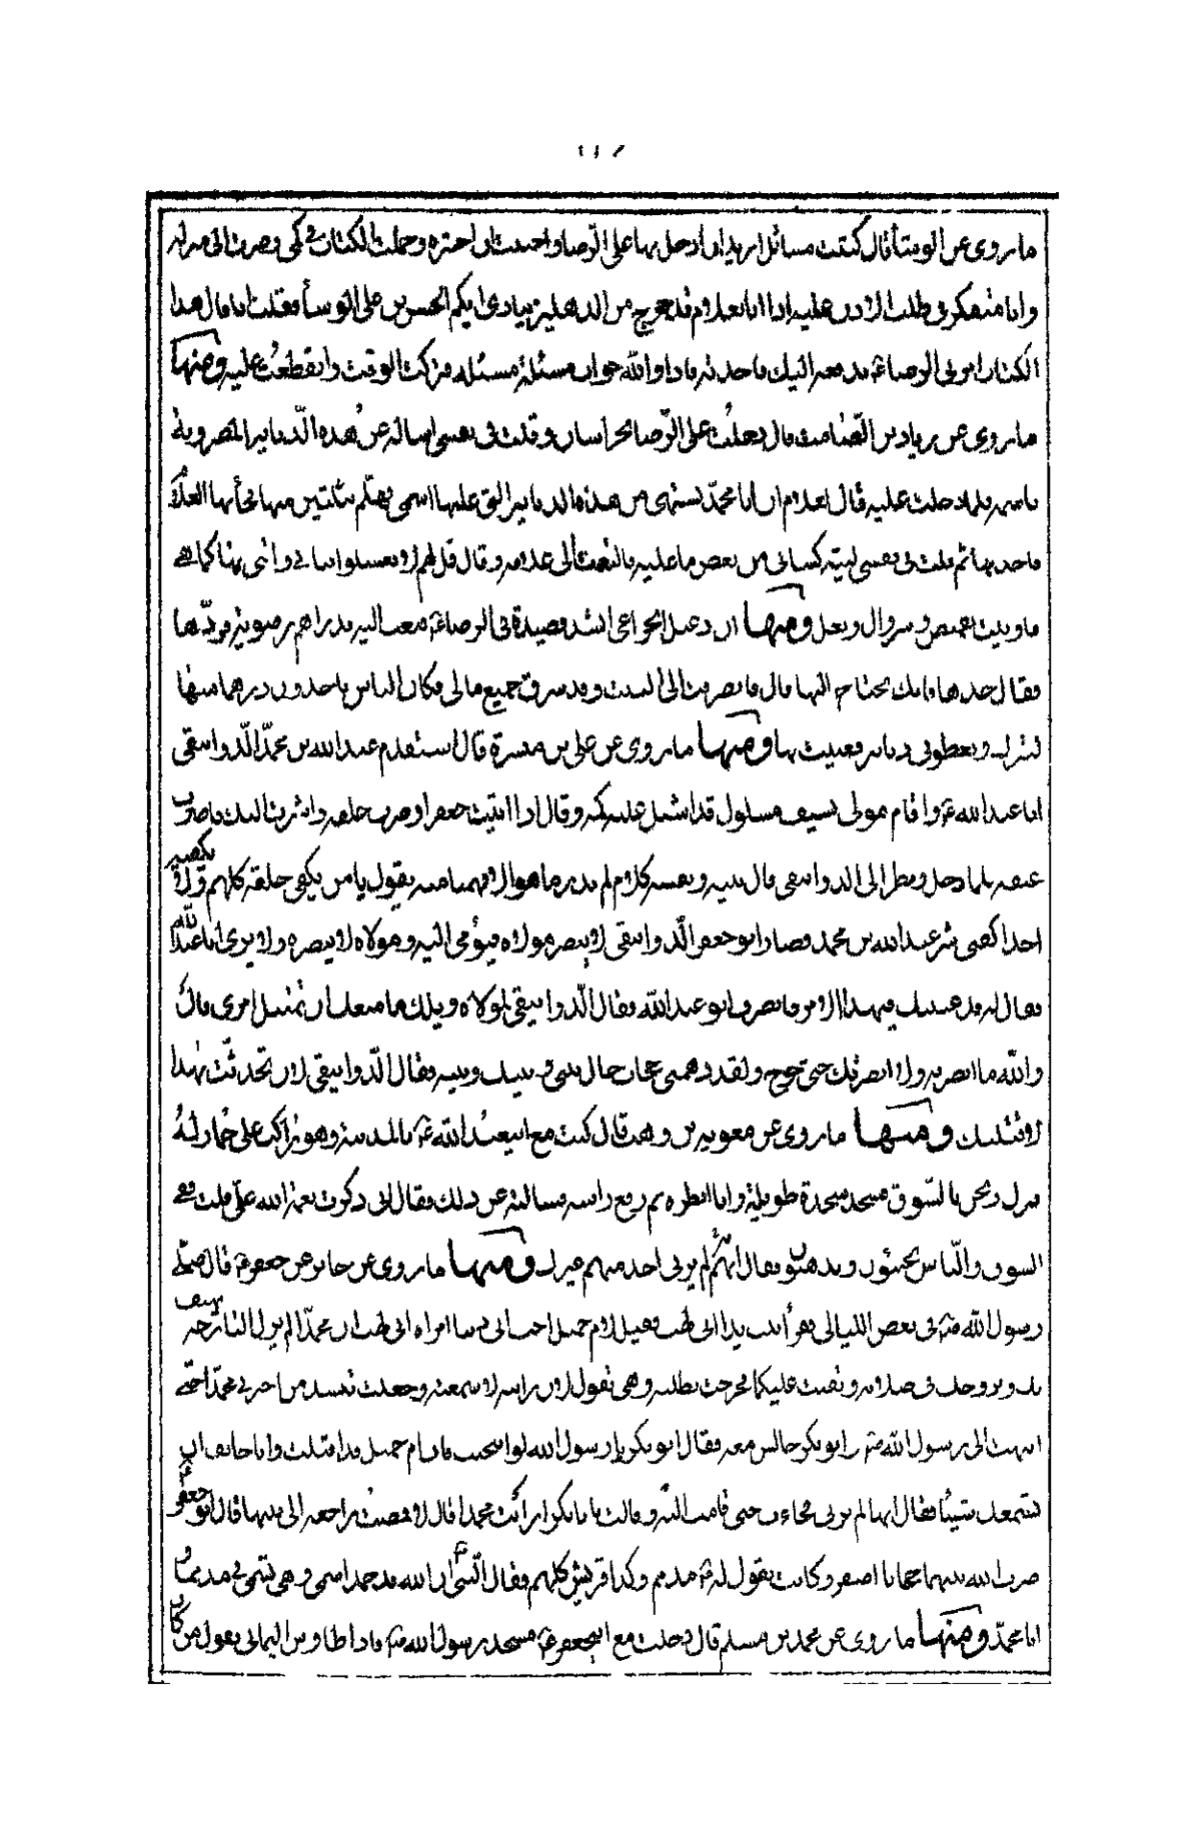 ما روى عن الوشأ قال كتبت مسائل اريد ان ادخل بها على الرّضا واحببت ان اختبره وحملت الكتاب فى كمى وصرت الى منزله
وانا متفكر فى طلب الاذن عليه اذا انا بغلام قد خرج من الدهليز ينادى ايكم الحسن بن على الوشأ فقلت انا قال هذا
الكتاب امرنى الرضا ع بدفعه اليك فاخذته فاذا والله جواب مسئلة مسئله فتركت الوقت وانقطعت عليه ومنها
ما روى عن ريان بن الصّامت قال دخلت على الرّضا بخراسان وقلت فى نفسى اساله عن هذه الدّنانير المضروبة
باسمه فلما دخلت عليه قال لغلام ان ابا محمّد يشتهى من هذه الدنانير التى عليها اسمى فهلم بثلثين منها فجأ بها الغلام
فاخذتها ثم قلت فى نفسى ليته كسانى من بعض ما عليه فالتفت الى غلامه وقال قل لهم لا تغسلوا ثيابى وائتنى بها كما هى
فاوتيت بقميص وسروال ونعل ومنها ان دعبل الخزاعى انشد قصيدة فى الرضا ع فبعث اليه بدراهم رضوية فردّها
فقال خذها فانك تحتاج اليها قال فانصرفت الى البيت وقد سرق جميع مالى فكان الناس ياخذون درهما منها
ويعطونى دنانير فغنيت بها ومنها ما روى عن على بن ميسرة قال استقدم عبد الله بن محمّد الدّوانيقى
ابا عبد الله ع واقام مولى بسيف مسلول قد اشتمل عليه كمه وقال اذا اتيت جعفرا وصرت خلفه واشرت اليك فاضرب
عنقه فلما دخل ونظر الى الدوانيقى قال بينه وبين نفسه كلام لم يدر ما هو الا فهمنا منه يقول يا من يكفى خلقه كلهم ولا يكفيه
احد اكفنى شر عبد الله بن محمد فصار ابو جعفر الدّوانيقى لا يبصر مولاه فيؤمى اليه ومولاه لا يبصره ولا يرى ابا عبد الله
فقال له قد عنيتك فى هذا الامر فانصرف ابو عبد الله فقال الدّوانيقى لمولاه ويلك ما منعك ان تمتثل امرى قال
والله ما ابصرته ولا ابصرتك حتى خرج ولقد دهمنى حجاب حال بينى وبينك وبينه فقال الدّوانيقى لان تحدثت بهذا
لاقتلنك ومنها ما روى عن معوية بن وهب قال كنت مع ابيعبد الله ع بالمدينة وهو راكب على حمار له
فنزل ونحن بالسّوق فسجد سجدة طويلة وانا انظره ثم رفع راسه فسالته عن ذلك فقال انى ذكرت نعمة الله علىّ قلت فى
السوق والنّاس يجيئون ويذهبون فقال انهم لم يرنى احد منهم غيرك ومنها ما روى عن جابر عن جعفر ع قال صلّى
رسول الله ص فى بعض الليالى فقرأ تبت يدا ابى لهب فقيل لام جميل اخت ابى سفيان امراة ابى لهب ان محمّدا لم يزل البارحة يهتف
بك وبزوجك فى صلاته ويقنت عليكما فخرجت تطلبه وهى تقول لان رايته لاسمعنه وجعلت تنشد من احس لى محمّدا حتّى
انتهت الى رسول الله ص وابو بكر جالس معه فقال ابو بكر يا رسول الله لو انتحيت فان ام جميل قد اقبلت وانا خائف ان
تسمعك شيئا فقال انها لم ترنى فجاءت حتى قامت اليه وقالت يا ابا بكر ارأيت محمدا قال لا فمضت راجعة الى بيتها قال ابو جعفر
ضرب الله بينهما حجابا اصفر وكانت تقول له ص مذمم وكذا قريش كلهم فقال النّبى ان الله قد حمد اسمى وهى تسمى مذمما
انا محمّد ومنها ما روى عن محمد بن مسلم قال دخلت مع ابيجعفر ع مسجد رسول الله ص فاذا طاوس اليمانى يقول من كان